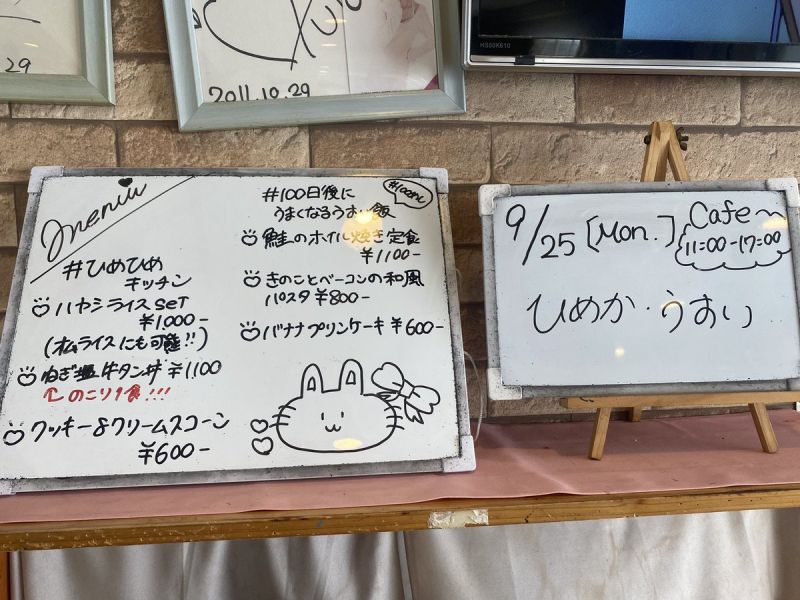 29
2011.10.29
HS50K610
menu
#ひめひめ
キッチン
ハヤシライスSET
¥1000-
(オムライスにも可能!!)
ねぎ塩牛タン丼 ¥1,100
↑のこり1食!!!
クッキー&クリームスコーン
¥600-
#100日後に
うまくなるうすい飯
鮭のホイル焼き定食
¥1100-
きのことベーコンの和風
パスタ ¥800-
バナナプリンケーキ ¥600-
9/25 [Mon.]
Cafe~
11:00-17:00
ひめか・うすい